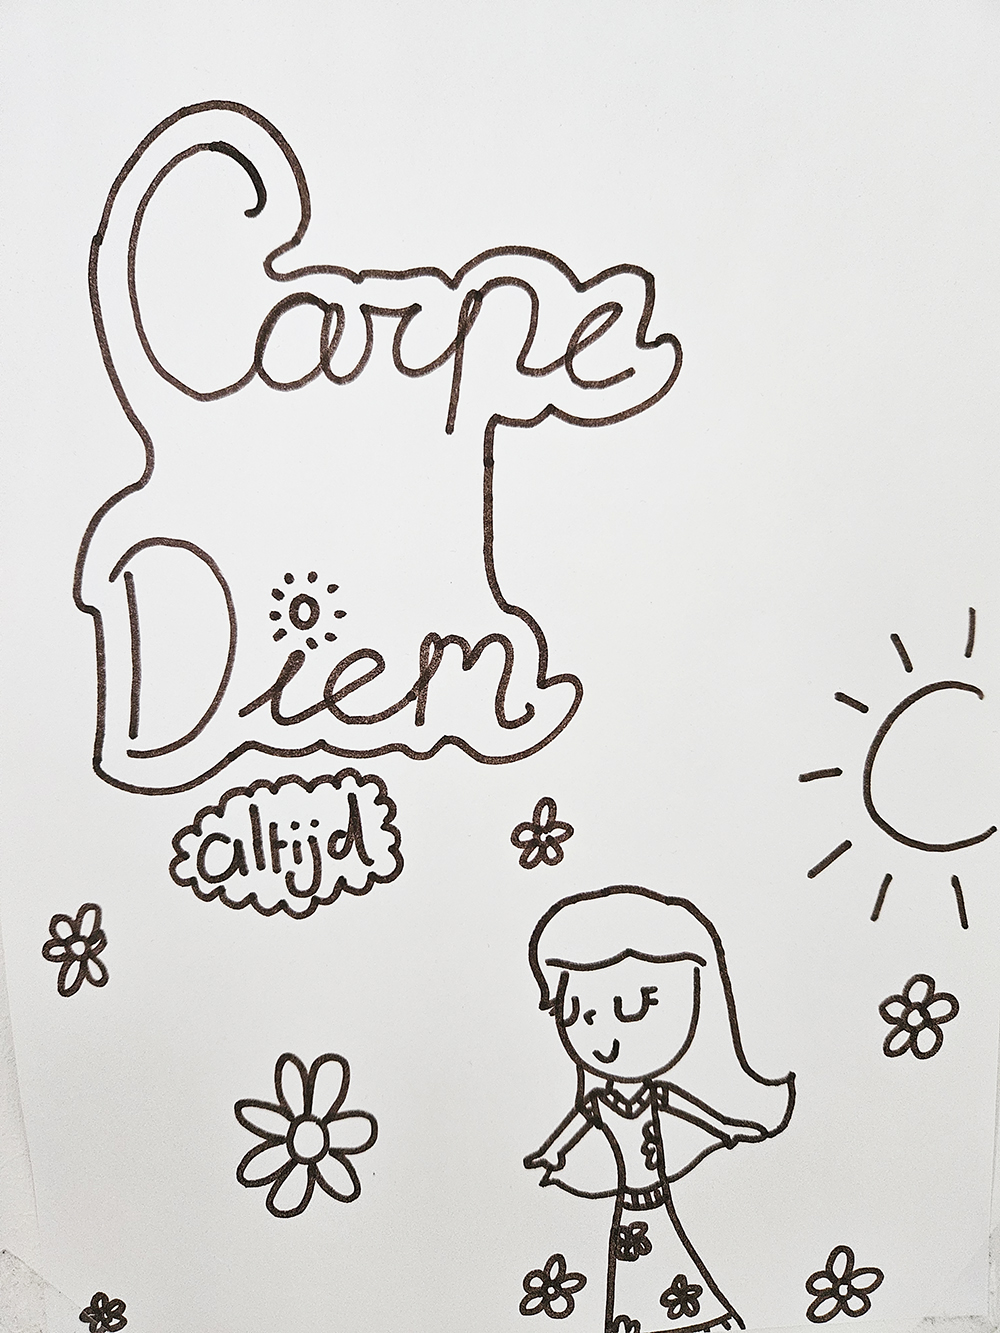 Carpe
Diem
altijd